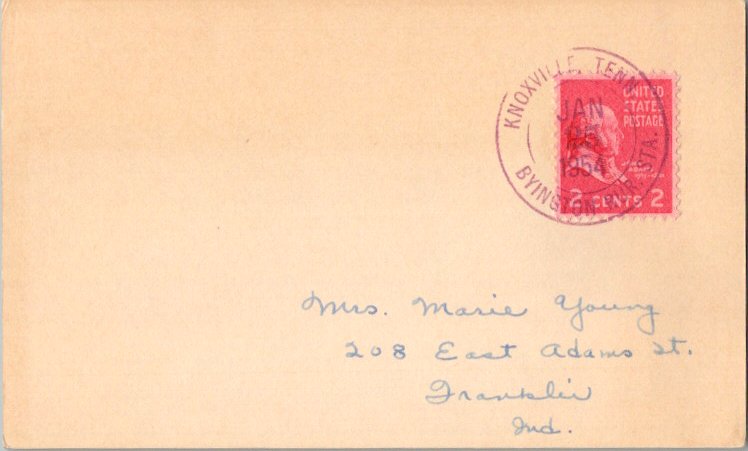 KNOXVILLE, TENN.
JAN
25
1954
BYINGTON RUR. STA.
UNITED
STATES
POSTAGE
JOHN
ADAMS
2 CENTS 2
Mrs. Marie Young
208 East Adams St.
Franklin
Ind.